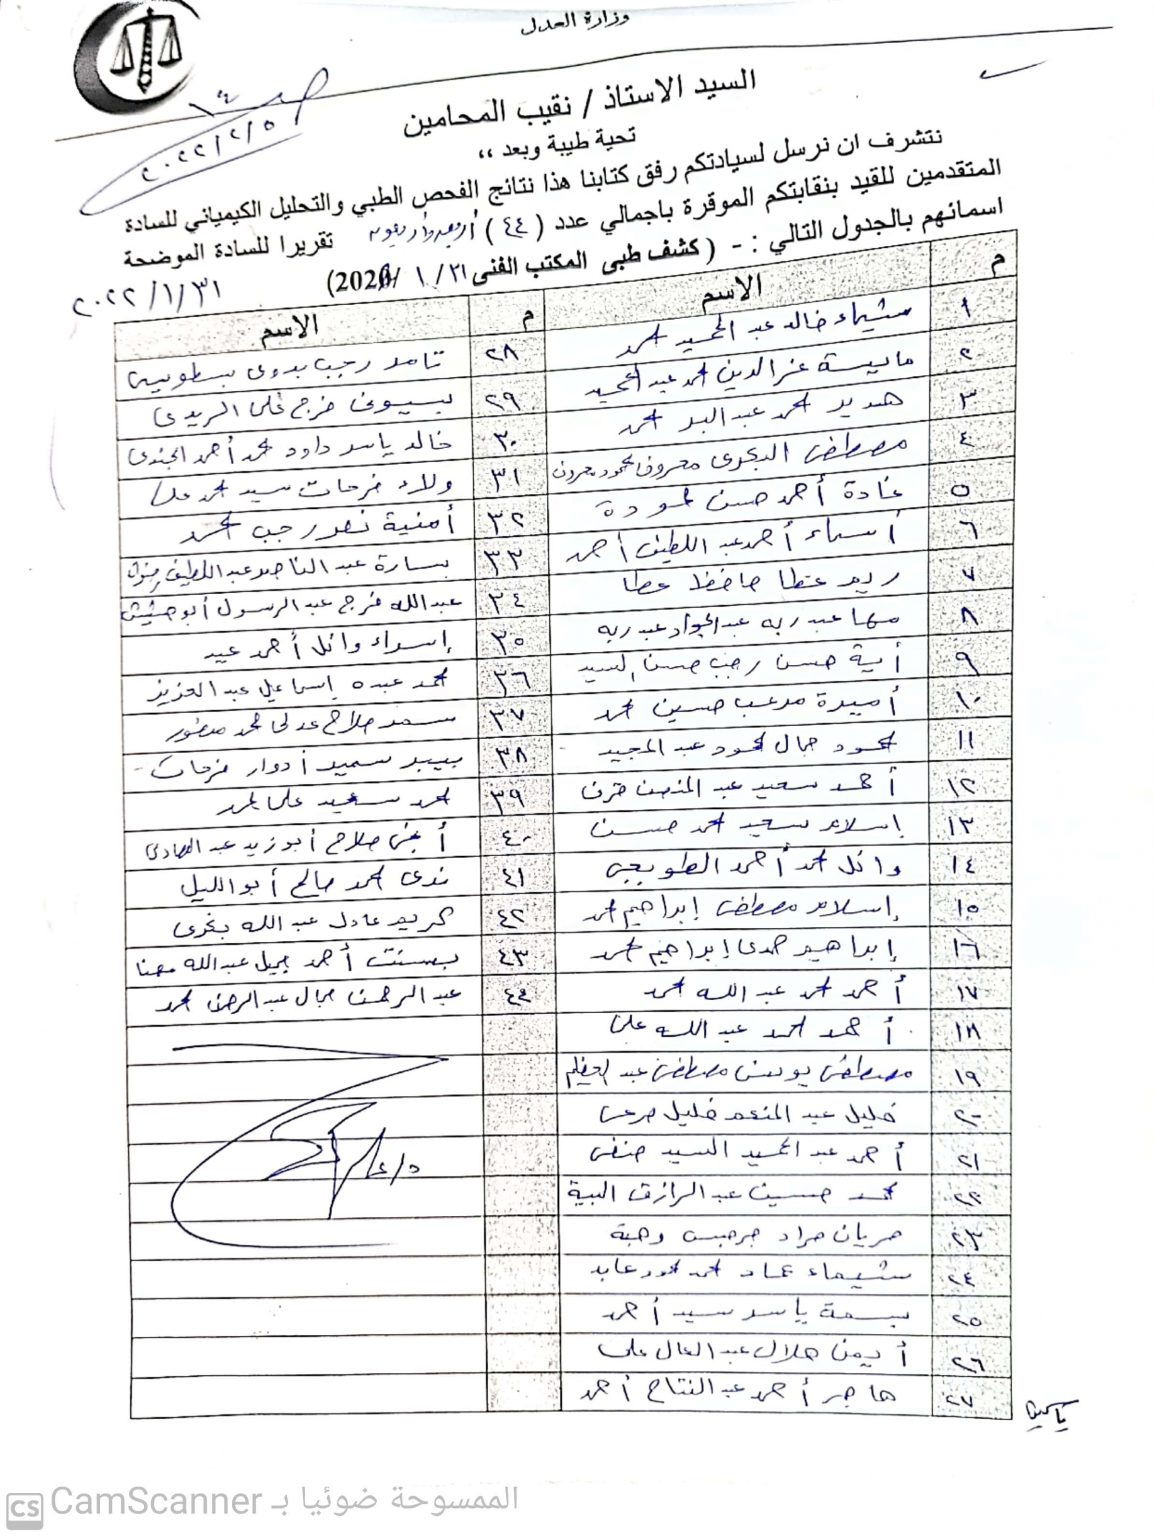 وزارة العدل
١٤
٢٠٢٢/٢/٥
السيد الاستاذ / نقيب المحامين
تحية طيبة وبعد ،،
نتشرف ان نرسل لسيادتكم رفق كتابنا هذا نتائج الفحص الطبي والتحليل الكيميائي للسادة
المتقدمين للقيد بنقابتكم الموقرة باجمالي عدد ( ٤٤ ) أربعة وأربعون تقريرا للسادة الموضحة
اسمائهم بالجدول التالي : - ( كشف طبى المكتب الفنى ٣١ / ١ /202)
٢٠٢٢/١/٣١
م الاسم
١ شيماء خالد عبد الحميد محمد
٢ مايسة عز الدين محمد عبد الحميد
٣ هدير محمد عبد البر محمد
٤ مصطفى البدوى معروف محمود معروف
٥ غادة أحمد حسن حمودة
٦ أسماء أحمد عبد اللطيف أحمد
٧ ريم عطا حافظ عطا
٨ مها عبد ربه عبد الجواد عبد ربه
٩ أية حسن رجب حسن السيد
١٠ أميرة حسين محمد
١١ محمود جمال محمود عبد المجيد
١٢ أحمد سعيد عبد
١٣ إسلام سعيد محمد حسن
١٤ وائل محمد أحمد الطويجى
١٥ إسلام مصطفى إبراهيم محمد
١٦ إبراهيم حمدى إبراهيم محمد
١٧ أحمد محمد عبد الله محمد
١٨ أحمد محمد عبد الله على
١٩ مصطفى يونس مصطفى عبد العظيم
٢٠ خليل عبد المنعم خليل مرعى
٢١ أحمد عبد الحميد السيد حنفى
٢٢ محمد حسين عبد الرازق البية
٢٣ مريان مراد جرجس وهبة
٢٤ شيماء عماد محمد محمود عابد
٢٥ بسمة ياسر سيد أحمد
٢٦ أيمن هلال عبد العال على
٢٧ هاجر أحمد عبد الفتاح أحمد
م الاسم
٢٨ تامر رجب بدوى بسطويسى
٢٩ بسيونى فرج على الريدى
٣٠ خالد ياسر داود محمد أحمد الجندى
٣١ ولاء فرحات سيد محمد على
٣٢ أمنية نصر رجب محمد
٣٣ سارة عبد الناصر عبد اللطيف
٣٤ عبد الله فرج عبد الرسول أبو حشيش
٣٥ إسراء وائل أحمد عيد
٣٦ محمد عبده إسماعيل عبد العزيز
٣٧ سمر صلاح عدلى محمد منصور
٣٨ بيير سمير أدوار فرحات
٣٩ محمد سعيد على محمد
٤٠ صلاح أبو زيد عبد الهادى
٤١ ندى محمد صالح أبو الليل
٤٢ كريم عادل عبد الله بخرى
٤٣ بسنت أحمد جميل عبد الله مهنا
٤٤ عبد الرحمن جمال عبد الرحمن محمد
ياسمين
CS CamScanner الممسوحة ضوئيا بـ